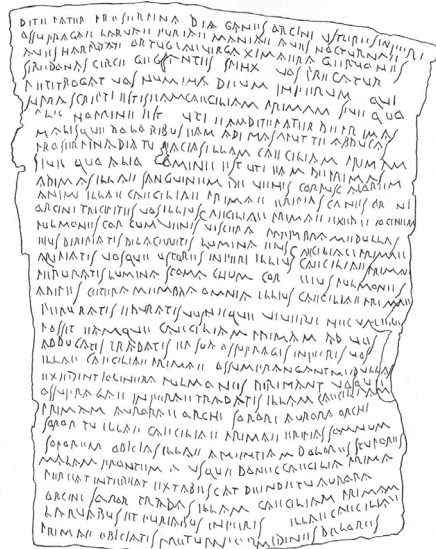 DITE PATER PROSERPINA DIA CANES ORCINI USTORES INFERI
OSSUFRAGAE LARVAE FURIAE MANIAE AVES NOCTURNAE
AVES HARPYIAE ORTUGIAE VIRGA XIMAERA GERUONES
SIREDONAS CIRCE GEGANTES SPINX VOS PRECATUR
ET PETIT ROGAT VOS NUMINA DEUM INFERUM QUI
SUPRA SCRIPTI ESTIS ILLAM CAECILIAM PRIMAM SIVE QUA
ALIO NOMINE EST UTI EAM DITE PATER DEPRIMAS
MALISQUE DOLORIBUS EAM ADIMAS ABDUCAS
PROSERPINA DIA TU FACIAS ILLAM CAECILIAM PRIMAM
SIVE QUA ALIO NOMINE EST UTI EAM DEPRIMAS
ADIMAS ILLAE SANGUINEM DE VENIS CORPUS CALOREM
ANIMI ILLAE CAECILIAE PRIMAE ERIPIAS CANES ORCINI
ORCINI TRICIPITES VOS ILLIUS CAECILIAE PRIMAE EXEDITE IOCINERA
PULMONES COR CUM VENIS VISCERA MEMBRA MEDULLAS
EIUS DIRIPIATIS DILACERETIS LUMINA EIUS CAECILIAE PRIMAE
AVRIATIS VOSQUE USTORES INFERI ILLIUS CAECILIAE PRIMAE
LUMINA STOMACHUM COR ILLIUS PULMONES
ADIPES CETERA MEMBRA OMNIA ILLIUS CAECILIAE PRIMAE
PERURATIS EURATIS VIVERE NEC VALERE
POSSIT EAMQUE CAECILIAM PRIMAM AD VOS
ADDUCATIS TRADATIS OSSUFRAGIS INFERIS VOS
ILLAE CAECILIAE PRIMAE OSSUM FRANGANT MEDULLAS
EXEDINT IOCINERA PULMONES DIRIMANT VOSQUE
OSSUFRAGAE INFERAE TRADATIS ILLAM CAECILIAM
PRIMAM AURORAE ORCHI SORORI AURORA ORCHI
SOROR TU ILLAE CAECILIAE PRIMAE ERIPIAS SOMNUM
SOPOREM OBICIAS ILLAE AMENTIAM DOLORES STUPORES
MALAM FRONTEM USQUE DONEC CAECILIA PRIMA
PEREAT INTEREAT EXTABESCAT DEINDE TU AURORA
ORCINI SOROR TRADAS ILLAM CAECILIAM PRIMAM
LARVABUS ET FURIABUS INFERIS ILLAE CAECILIAE
PRIMAE OBICIATIS FORMIDINES DOLORES